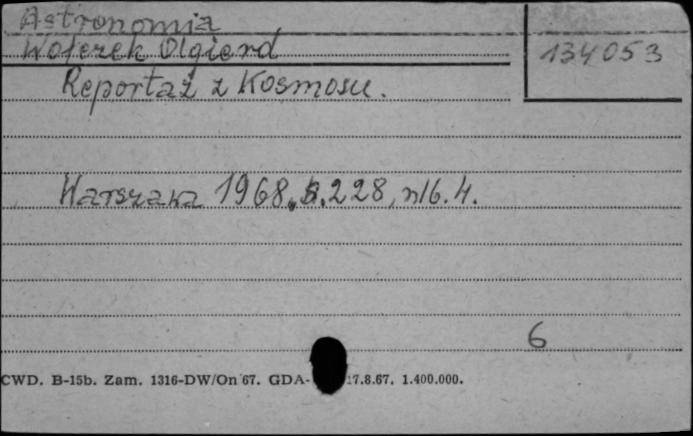 Astronomia
Wołczek Olgierd
134053
Reportaż z Kosmosu.
Warszawa 1968, s. 228, nlb. 4.
6
CWD. B-15b. Zam. 1316-DW/On 67. GDA- 17.8.67. 1.400.000.